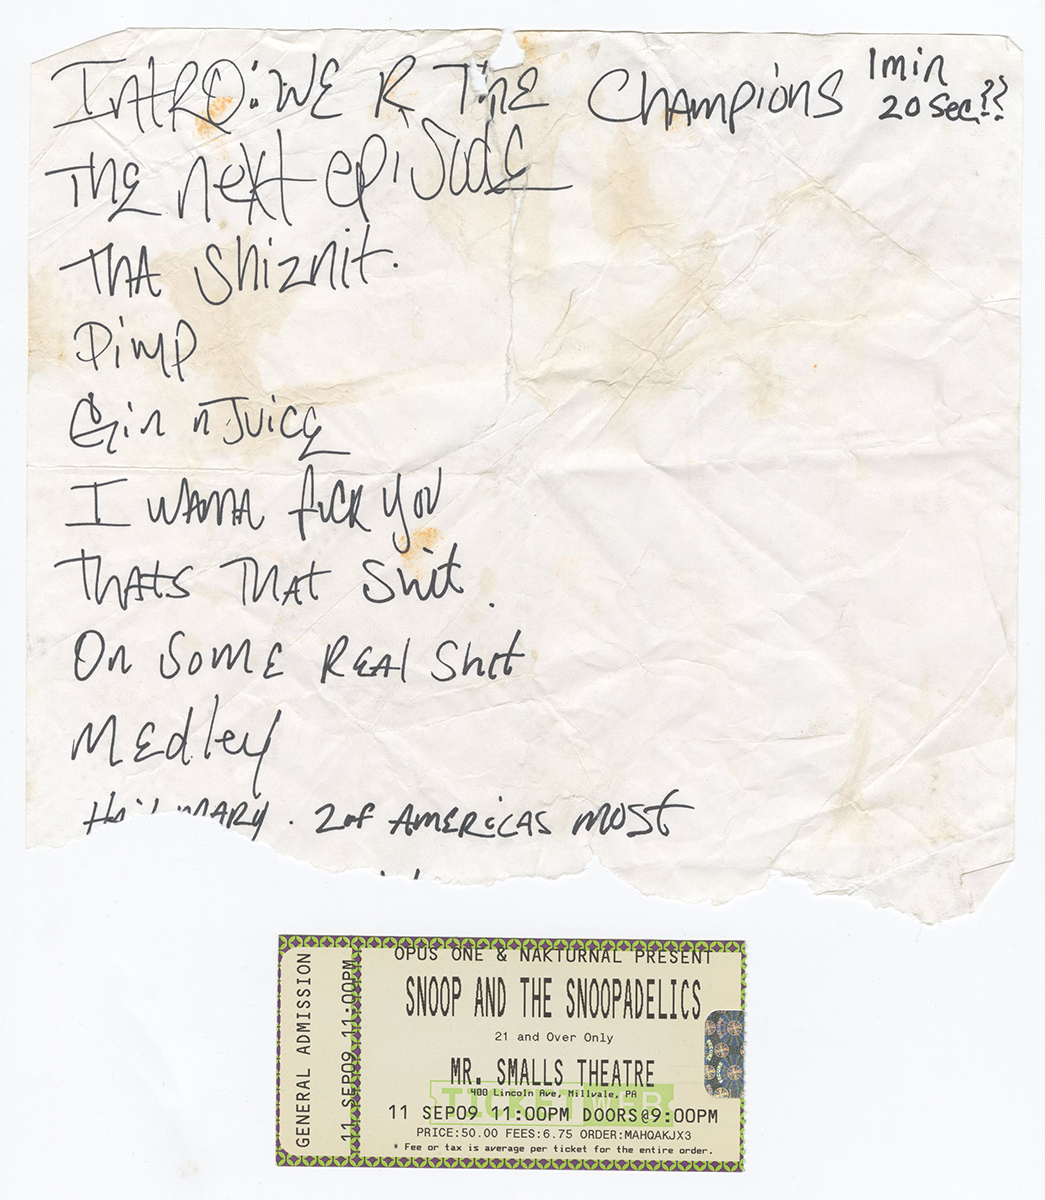 INTRO: WE R THE Champions 1min
20 sec??
THE next episode
THA Shiznit.
Pimp
Gin n Juice
I WANNA fuck you
THATS THAT Shit.
On Some REAl Shit
MEdley
Hail MARY. 2 of AMERiCAS MOST
GENERAL ADMISSION
11 SEP09 11:00PM
OPUS ONE & NAKTURNAL PRESENT
SNOOP AND THE SNOOPADELICS
21 and Over Only
MR. SMALLS THEATRE
400 Lincoln Ave, Millvale, PA
TICKETWEB
11 SEP09 11:00PM DOORS@9:00PM
PRICE:50.00 FEES:6.75 ORDER:MAHQAKJX3
* Fee or tax is average per ticket for the entire order.